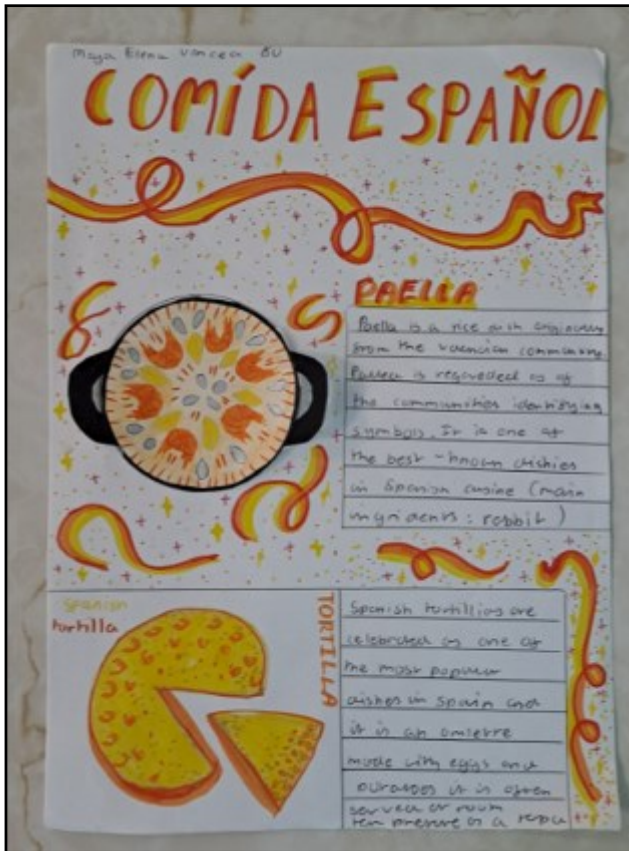 Maya Elena Vancea 8U
COMÍDA ESPAÑOL
PAELLA
Paella is a rice dish originally
from the Valencian community
Paella is regareded as of
the communities identifying
symbols. It is one of
the best-known dishies
in Spanish cusine (main
ingridents: rabbit)
Spanish
tortilla
TORTILLA
Spanish tortillias are
celebrated as one of
the most popular
dishes in Spain and
it is an omlette
made with eggs and
it is often
served at room
as a